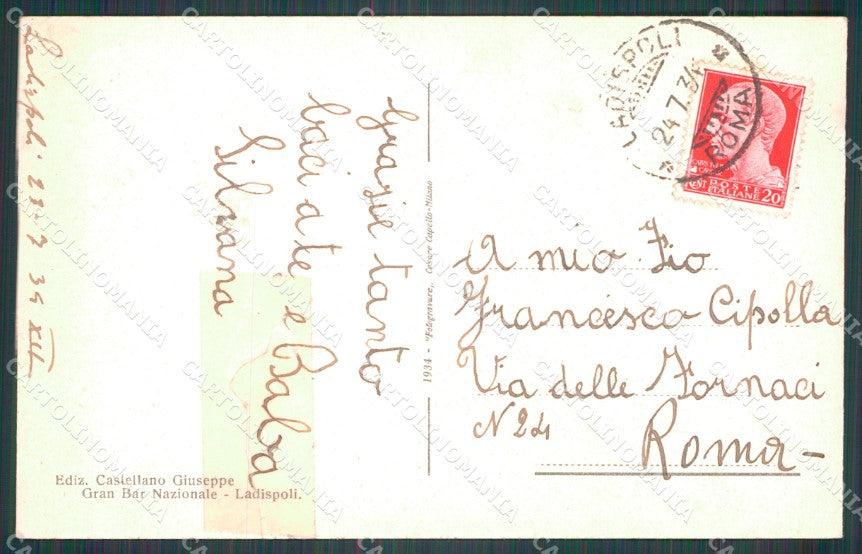 Ladispoli 23-7 34 XII
Grazie tanto
baci a te e Baba
Silvana
Ediz. Castellano Giuseppe
Gran Bar Nazionale - Ladispoli.
1934 - "Fotogravure" Cesare Capello-Milano
LADISPOLI
24.7.34
ROMA
POSTE
ITALIANE
CENT 20
A mio Zio
Francesco Cipolla
Via delle Fornaci
N 24
Roma -
CARTOLINOMANIA